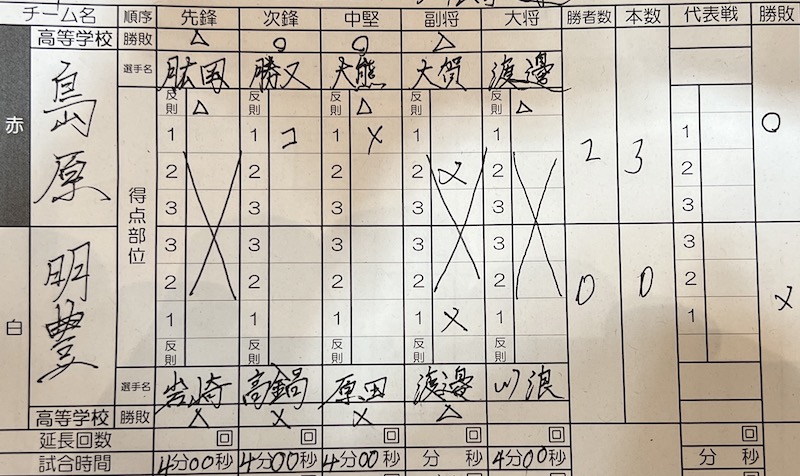 チーム名 順序 先鋒 次鋒 中堅 副将 大将 勝者数 本数 代表戦 勝敗
高等学校 勝敗 △ ○ ○ △
選手名 肱岡 勝又 大熊 大賀 渡邊
赤 島原
反則 △ 反則 反則 △ 反則 反則 △
1 1 コ 1 メ 1 1 1 ○
2 2 2 2 メ 2 2 3 2
3 3 3 3 3 3
得点部位
白 明豊
3 3 3 3 3 3
2 2 2 2 2 0 0 2 メ
1 1 1 1 メ 1 1
反則 反則 反則 反則 反則
選手名 岩崎 高鍋 原田 渡邊 川浪
高等学校 勝敗 × × × △
延長回数 回 回 回 回 回 回
試合時間 4分00秒 4分00秒 4分00秒 分 秒 4分00秒 分 秒